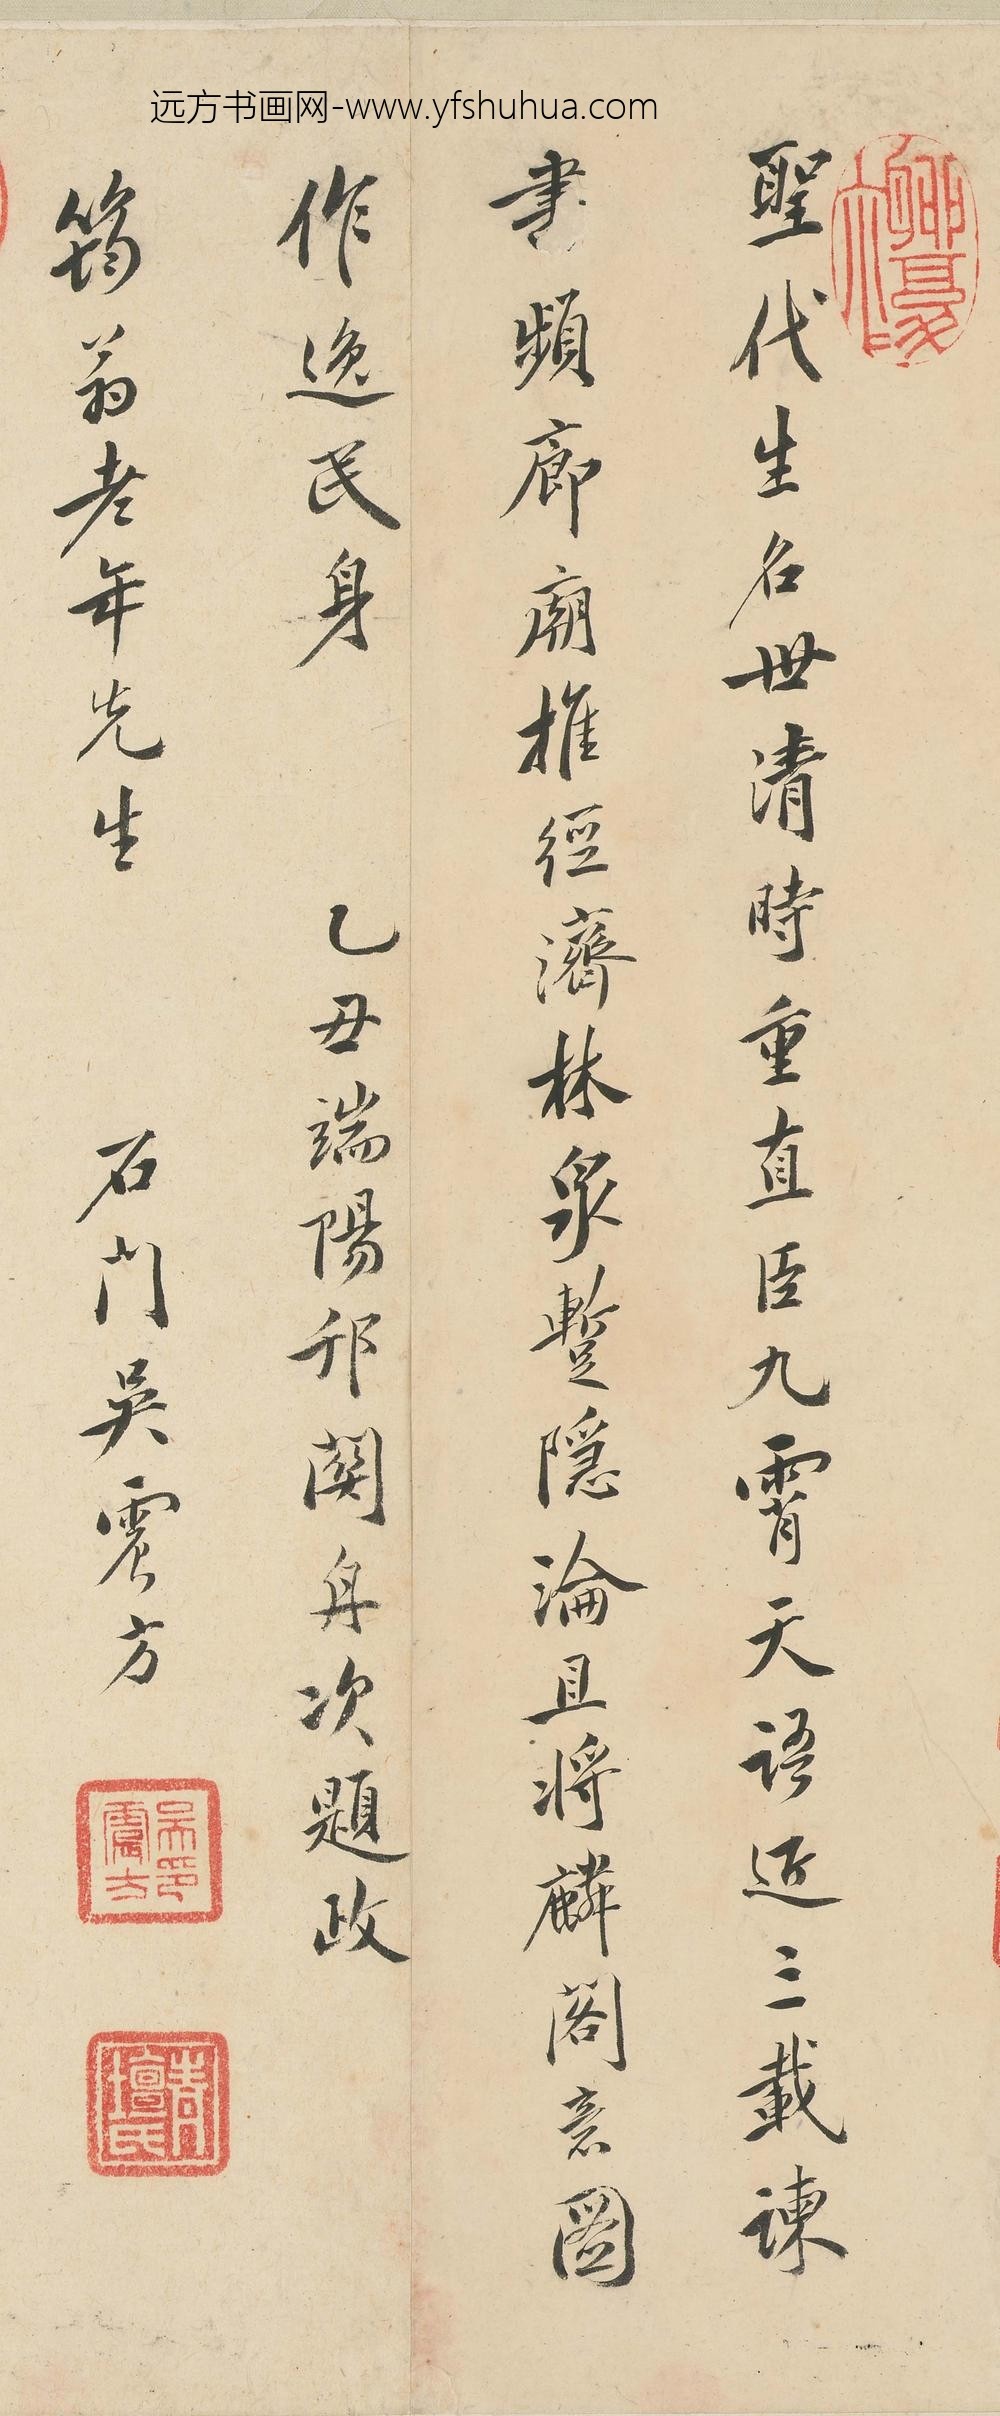 远方书画网-www.yfshuhua.com
聖代生名世清時重直臣九霄天語近三載諫
書頻廊廟推經濟林泉暫隱淪且將麟閣意圖
作逸民身 乙丑端陽邗關舟次題政
筠翁老年先生 石門吳震方
吳震方印